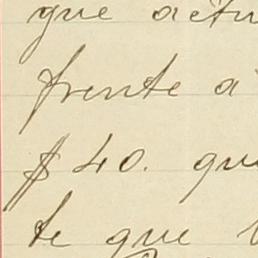 que actu
frente a
$ 40. que
te que